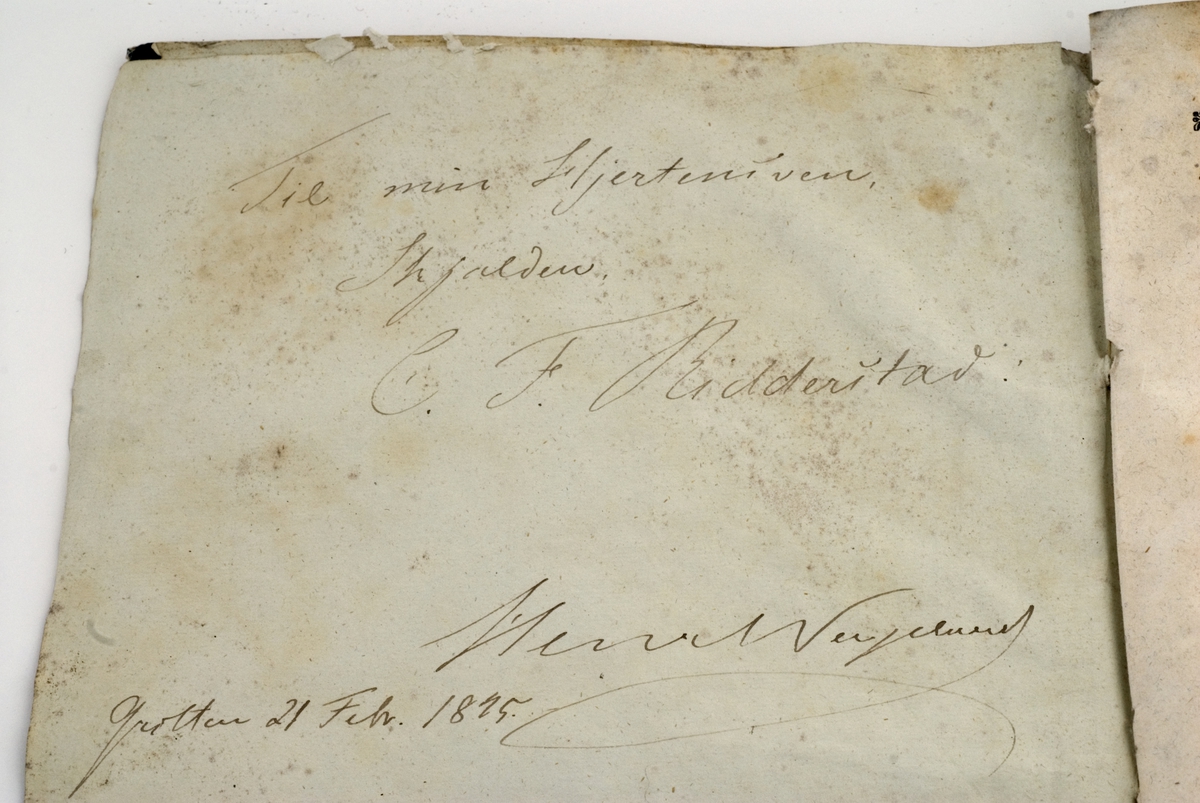 Til min Hjertensven,
Skjalden,
C. F. Ridderstad.
Henr Wergeland
Grotten 21 Febr. 1845.